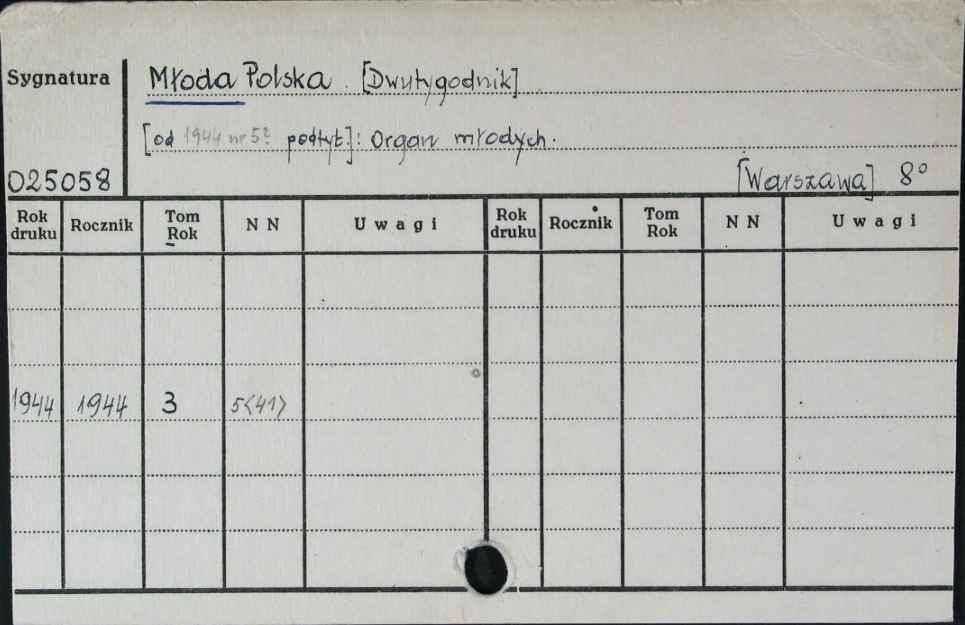 Sygnatura Młoda Polska. [Dwutygodnik]
[od 1944 nr 5? podtyt.]: Organ młodych.
025058 [Warszawa] 8°
Rok druku Rocznik Tom Rok N N Uwagi Rok druku Rocznik Tom Rok N N Uwagi
1944 1944 3 5<41>